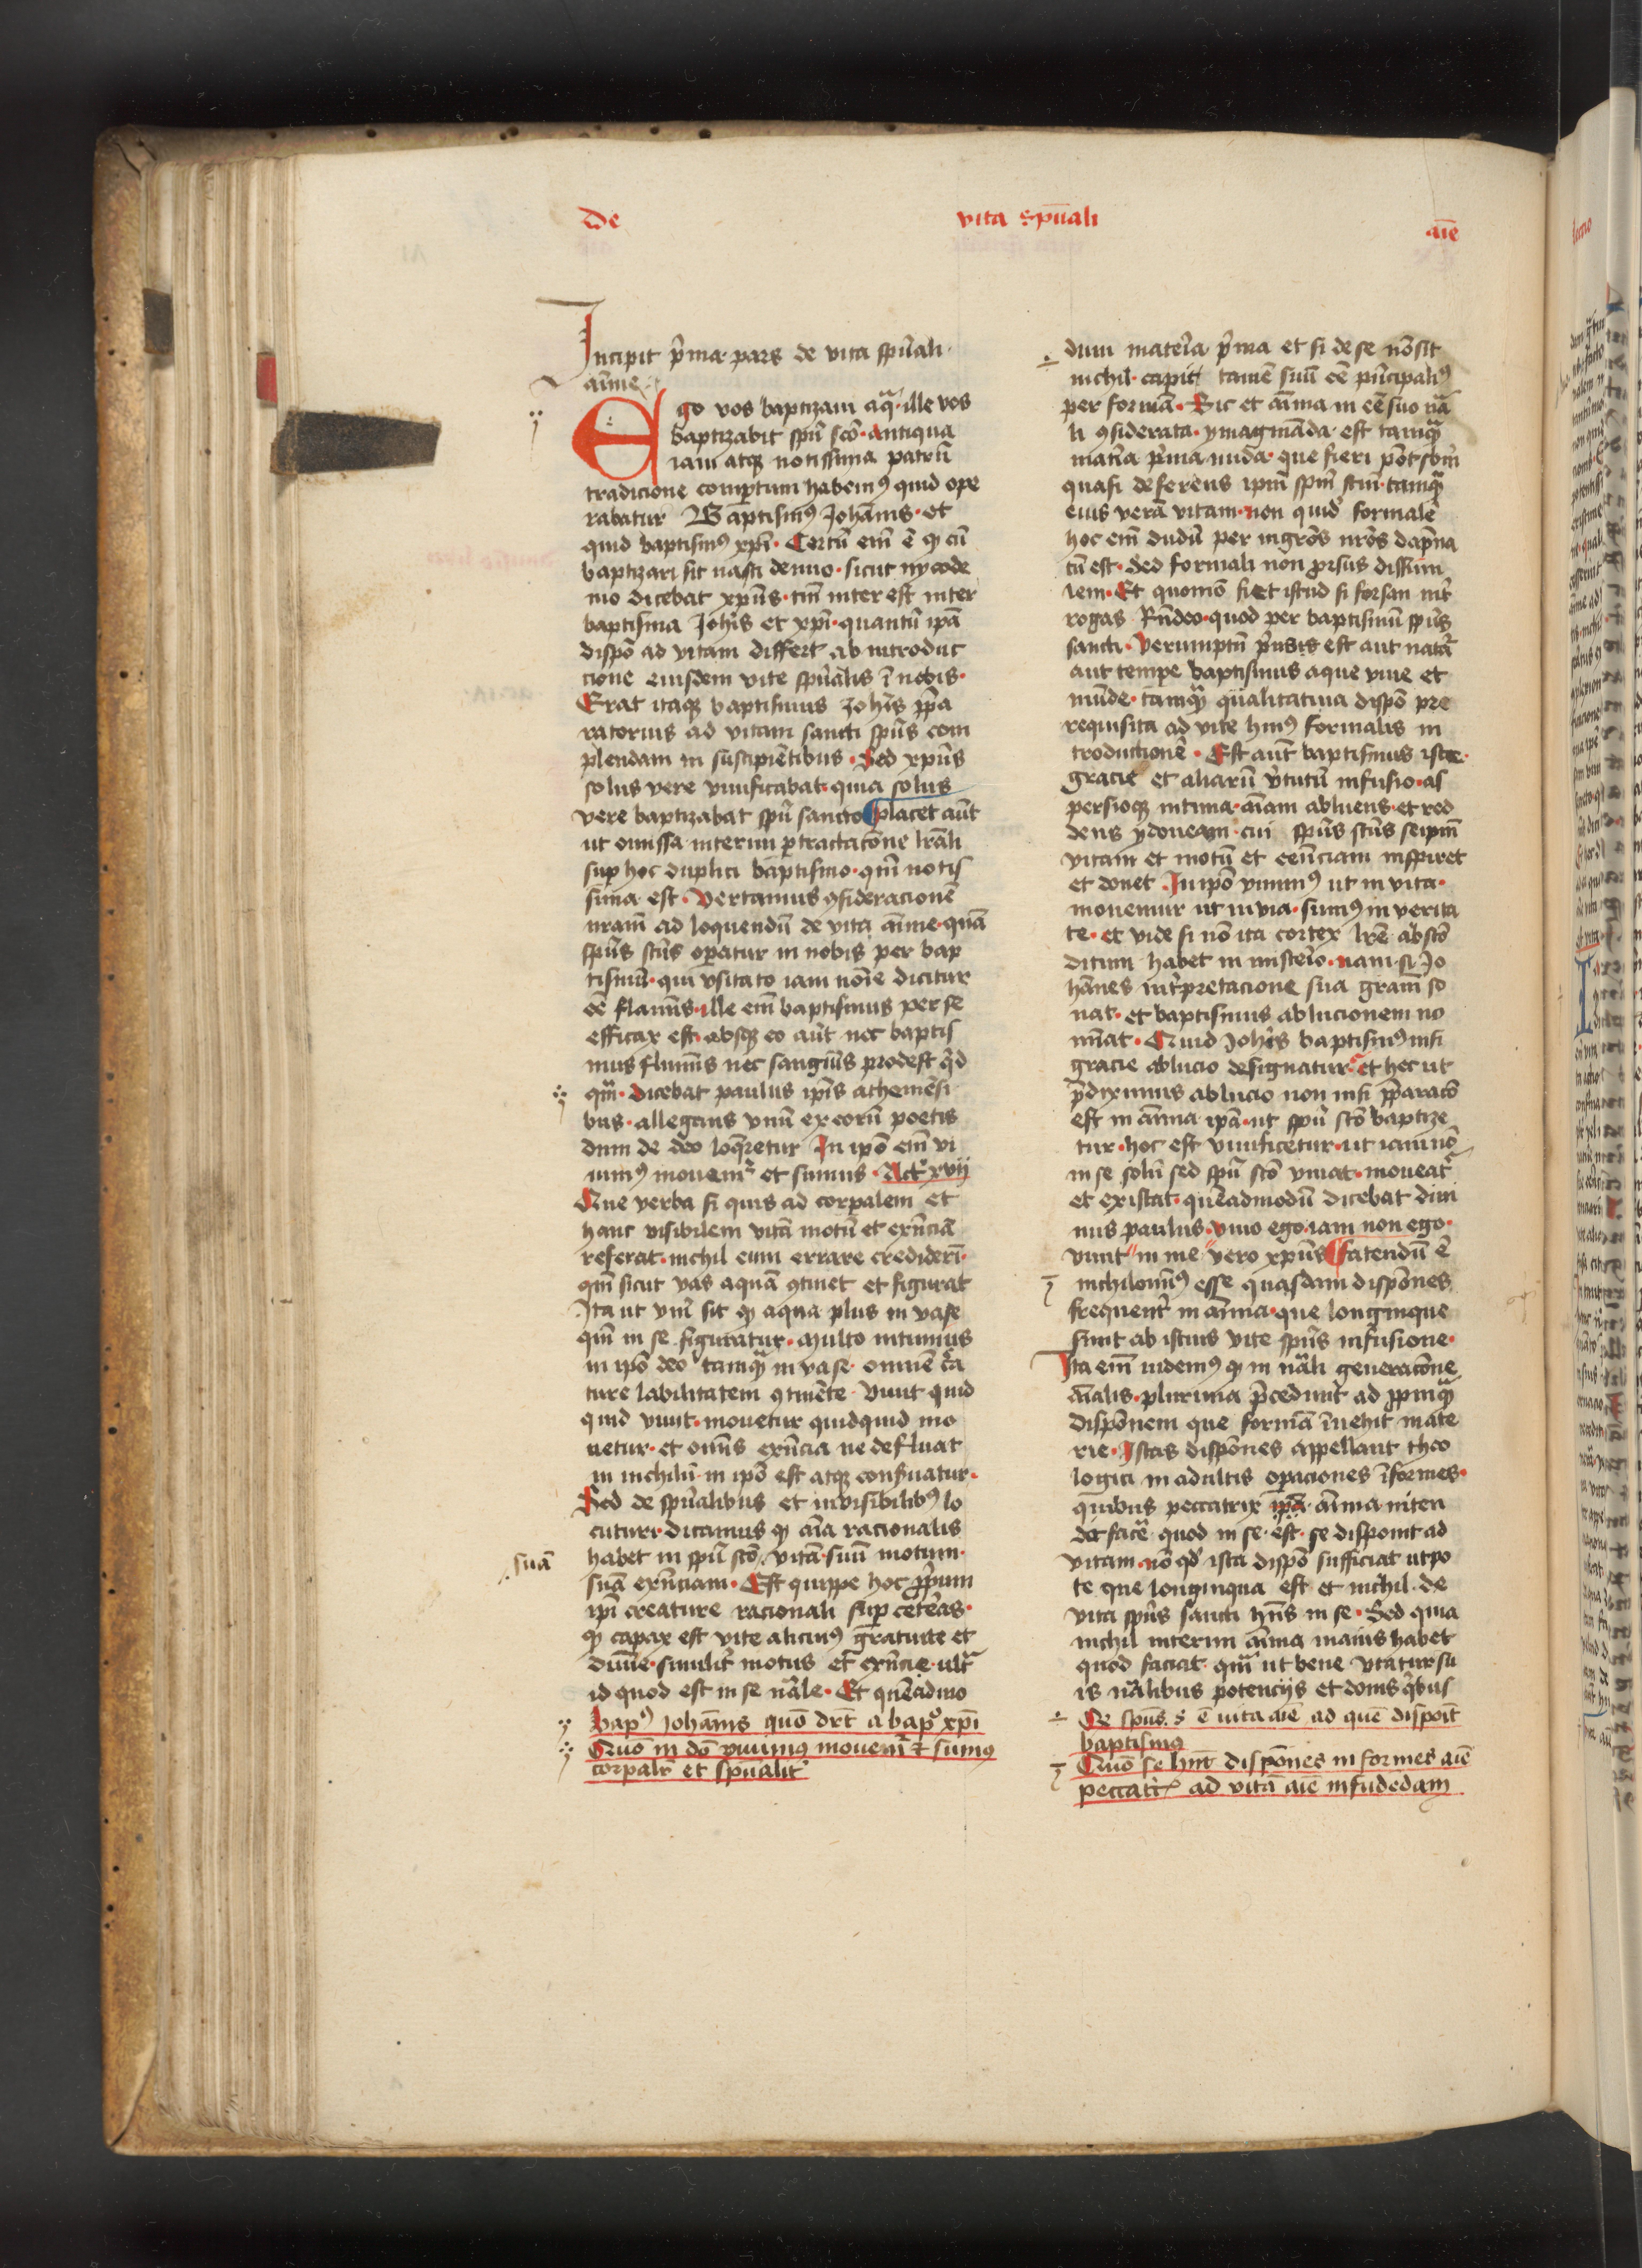 de vita spūali aīe
Incipit p̄ma pars de vita spūali
aīme
Ego vos baptizavi aqa ille vos
baptizabit spū scō antiqua
iam atqꝫ notissima patrū
tradicione compertum habemꝰ quid ope
rabatur Baptismꝰ Johānis et
quid baptismꝰ xpī Certū em̄ ē qꝫ cū
baptizari sit nasci denuo sicut nycode
mo dicebat xpūs tm̄ inter est inter
baptisma Johīs et xpī quantū ipā
dispō ad vitam differt ab introduc
cione eiusdem vite spūalis ī nobis
Erat itaqꝫ baptismus Johīs ppa
ratorius ad vitam sancti spūs com
plendam in suscipiētibus Sed xpūs
solus vere vivificabat quia solus
vere baptizabat spū sancto Placet aūt
ut omissa interim ptractacōne lrāli
sup hoc duplici baptismo qm̄ notis
sima est Vertamus ꝯsideracionē
nrām ad loquendū de vita aīme quā
spūs scūs opatur in nobis per bap
tismū qui usitato iam noīe dicitur
eē flamīs ille em̄ baptismus per se
efficax est absqꝫ eo aūt nec baptis
mus flumīs nec sanguīs prodest qd
qm̄ dicebat paulus ipīs athemēsi
bus allegans unū ex eorū poetis
dum de deo loqretur In ipō em̄ vi
vimꝰ movemr et sumus Act xvij
Que verba si quis ad corpalem et
hanc visibilem vitā motū et exn̄ciā
referat nichil eum errare crediderī
qm̄ sicut vas aquā ꝯtinet et figurat
Ita ut vm̄ sit qꝫ aqua plus in vase
qm̄ in se figuratur multo intimius
in ipō deo tamqꝫ in vase omnē crea
ture labilitatem ꝯtinēte vivit quid
quid vivit movetur quidquid mo
vetur et omīs exn̄cia ne defluat
in nichilū in ipō est atqꝫ conservatur
Sed de spūalibus et invisibilibꝰ lo
cuturi dicamus qꝫ aīa racionalis
suā
habet in spū scō vitā suū motum
suā exn̄ciam Est quippe hoc pprium
ipī creature racionali sup ceteras
qꝫ capax est vite alicuiꝰ gratuite et
divine similir motus et exn̄cie ultra
id quod est in se nāle Et quēadmo
bapꝰ Johānis quō drt a bapo xpī
Quō in dō vivimꝰ movemr et sumꝰ
corpalr et spūalit
dum materia p̄ma et si de se nō sit
nichil capit tamē suū eē prīncipaliꝰ
per formā Sic et aīma in eē suo nā
li ꝯsiderata ymagināda est tamqꝫ
matīa p̄ma nuda que fieri pōt sbm
quasi deferens ipm spm scm tamqꝫ
eius verā vitam non quidē formalē
hoc em̄ dudū per ingrōs nr̄os dāpna
tū est sed formali non prsus dissimi
lem Et quomō fiet istud si forsan int
rogas Rn̄deo quod per baptismū spūs
sancti Verumptn̄ prīus est aut natā
aut tempe baptismus aque vive et
munde tamqꝫ qualitativa dispō pre
requisita ad vite huiꝰ formalis in
troductionē Est aūt baptismus iste
gracie et aliarū v̄tutū infusio as
persioqꝫ intima aīam abluens et red
dens ydoneam cui spūs scūs seipm
vitam et motū et eēnciam inspiret
et donet In ipō vivimꝰ ut in vita
movemur ut in via sumꝰ in verita
te et vide si nō ita cortex lrē abscō
ditum habet in misterio nam si Jo
hānes interpretacione sua gram so
nat et baptismus ablucionem no
mīat Quid Johīs baptismꝰ nisi
gracie ablucio designatur et hec ut
p̄diximus ablucio non nisi pparacō
est in aīma ipā ut spū scō baptize
tur hoc est vivificetur ut iam nō
in se solū sed spū scō vivat moveatr
et existat quēadmodū dicebat divi
nus paulus vivo ego iam non ego
vivit in me vero xpūs Fatendū ē
nichilomīꝰ esse quasdam dispōnes
frequent in aīma que longinque
sunt ab istius vite spūs infusione
Ita em̄ videmꝰ qꝫ in nāli generacōne
aīalis plurima p̄cedunt ad ppinqꝫ
dispōnem que formā īvehit mate
rie Istas dispōnes appellant theo
logici in adultis opaciones īformes
quibus peccatrix aīma niten
do facē quod in se est se disponit ad
vitam nō qd ista dispō sufficiat utpo
te que longinqua est et nichil de
vita spūs sancti hn̄s in se Sed quia
nichil interim aīma manis habet
quod faciat qm̄ ut bene utatur su
is nālibus potencijs et donis qbus
De spūs s ē vita aīe ad quē dispoīt
baptismꝰ
Quō se hn̄t dispōnes informes aīe
peccatrꝭ ad vitā aīe infudēdam